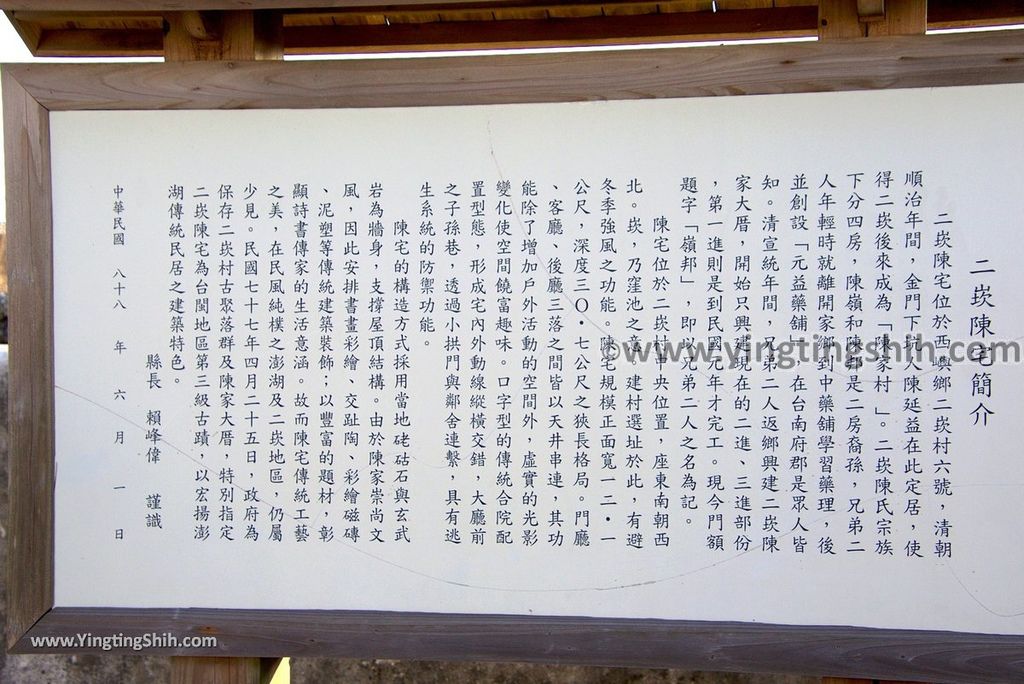 二崁陳宅簡介
二崁陳宅位於西嶼鄉二崁村六號，清朝
順治年間，金門下坑人陳延益在此定居，使
得二崁後來成為「陳家村」。二崁陳氏宗族
下分四房，陳嶺和陳邦是二房裔孫，兄弟二
人年輕時就離開家鄉到中藥舖學習藥理，後
並創設「元益藥舖」，在台南府郡是眾人皆
知。清宣統年間，兄弟二人返鄉興建二崁陳
家大厝，開始只興建現在的二進、三進部份
，第一進則是到民國元年才完工。現今門額
題字「嶺邦」，即以兄弟二人之名為記。
陳宅位於二崁村中央位置，座東南朝西
北。崁，乃窪池之意。建村選址於此，有避
冬季強風之功能。陳宅規模正面寬一二·一
公尺，深度三○·七公尺之狹長格局。門廳
、客廳、後廳三落之間皆以天井串連，其功
能除了增加戶外活動的空間外，虛實的光影
變化使空間饒富趣味。口字型的傳統合院配
置型態，形成宅內外動線縱橫交錯，大廳前
之子孫巷，透過小拱門與鄰舍連繫，具有逃
生系統的防禦功能。
陳宅的構造方式採用當地硓𥑮石與玄武
岩為牆身，支撐屋頂結構。由於陳家崇尚文
風，因此安排書畫彩繪、交趾陶、彩繪磁磚
、泥塑等傳統建築裝飾；以豐富的題材，彰
顯詩書傳家的生活意涵。故而陳宅傳統工藝
之美，在民風純樸之澎湖及二崁地區，仍屬
少見。民國七十七年四月二十五日，政府為
保存二崁村古聚落群及陳家大厝，特別指定
二崁陳宅為台閩地區第三級古蹟，以宏揚澎
湖傳統民居之建築特色。
縣長 賴峰偉 謹識
中華民國 八十八 年 六 月 一 日
©www.yingtingshih.com
www.YingtingShih.com